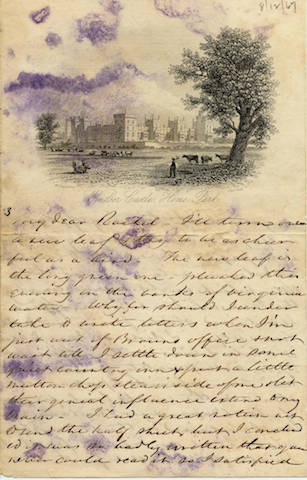 8/12/67
Windsor Castle, Home Park
3
My dear Rachel I'll turn over
a new leaf & try to be as cheer
ful as a bird. The new leaf is
the long green one plucked this
evening on the banks of Virginia
water. Why for should I under
take to write letters when I'm
just out of Browns office & not
wait till I settle down in some
quiet country inn & put a little
mutton chop steam side of me & let
their genial influence extend to my
brain. I had a great notion not
to send the half sheet, but I concluded
it was so badly written that you
never could read it so I satisfied